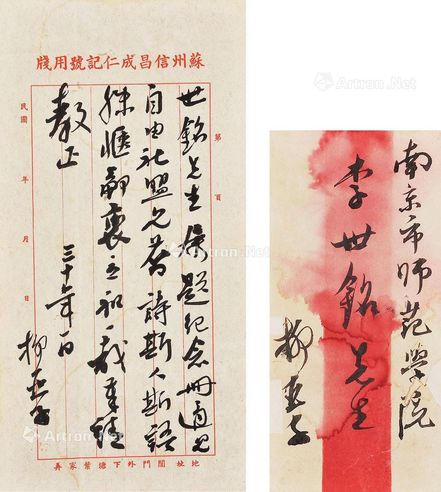 蘇州信昌成仁記號用牋
第 頁
世銘先生属題紀念冊適見
自由社盟兄舊詩斯人斯語
殊愜鄙衷立和一截奉
教正
三十年 日
柳亞子
民國 年 月 日
地址閶門外下塘葉家弄
南京市師範學院
李世銘先生
柳亞子
Artron.Net
Artron.Net
Artron.Net